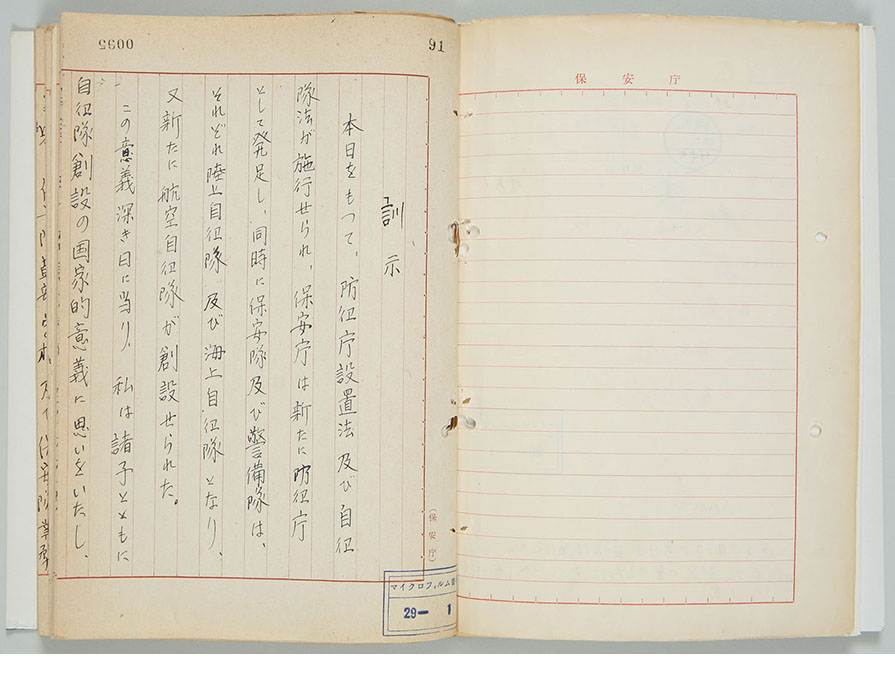 保安庁
訓示
本日をもつて、防衛庁設置法及び自衛
隊法が施行せられ、保安庁は新たに防衛庁
として発足し、同時に保安隊及び警備隊は、
それぞれ陸上自衛隊及び海上自衛隊となり、
又新たに航空自衛隊が創設せられた。
この意義深き日に当り、私は諸子とともに
自衛隊創設の国家的意義に思いをいたし、
(保安庁)
マイクロフィルム
29— 1
91
0095